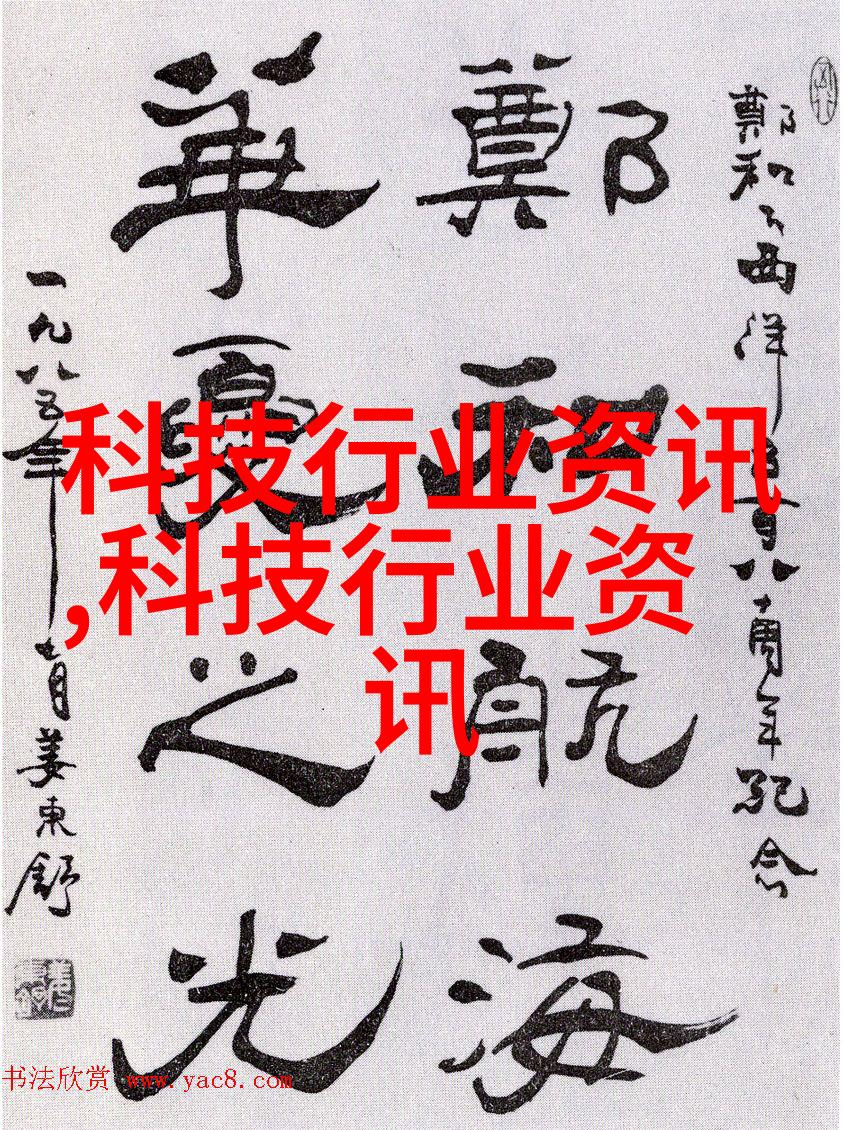 鄭和下西洋五百八十周年紀念
鄭和航海
華夏之光
一九八五年十一月姜東舒
科技行业资讯
,科技行业资
讯
书法欣赏 www.yac8.com